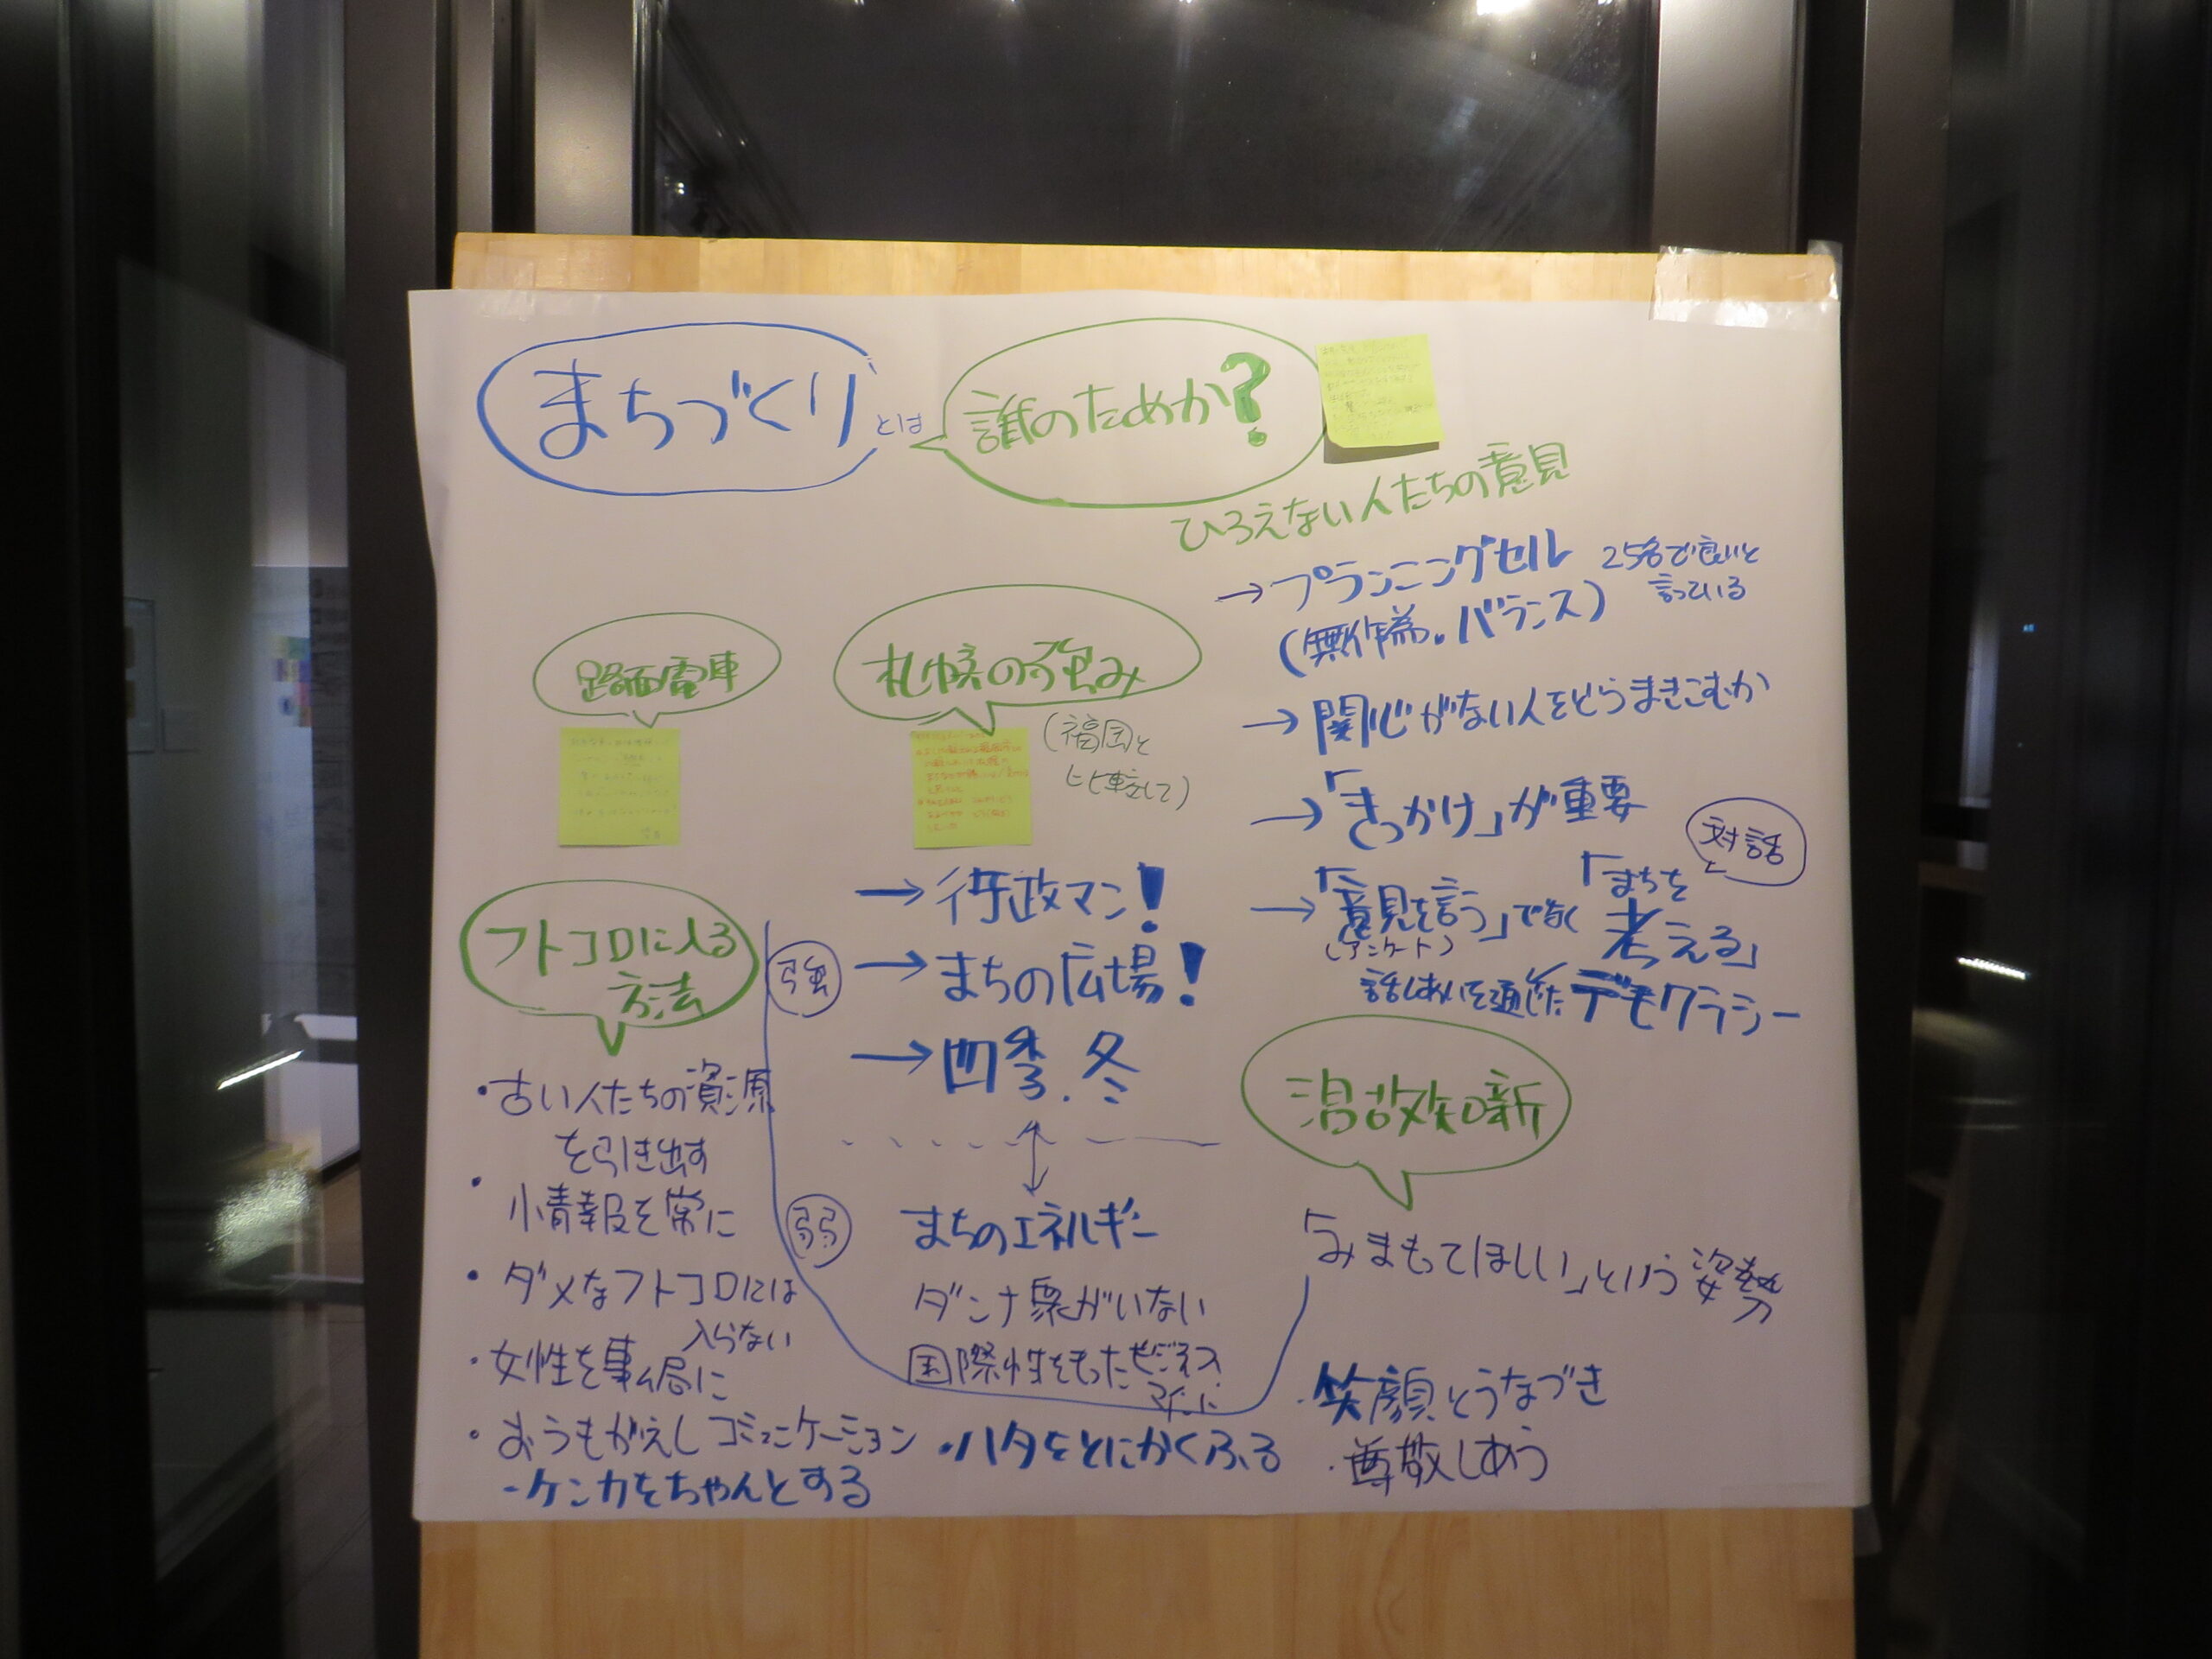 まちづくり とは
誰のためか?
ひろえない人たちの意見
→プランニングセル 25名で良いと
言っている
(無作為。バランス)
→関心がない人をどうまきこむか
→「きっかけ」が重要
→「意見を言う」でなく「まちを
考える」
(アンケート)
対話
と
話しあいを通じた デモクラシー
路面電車
札幌の強み
(福岡と
比較して)
強
→行政マン!
→まちの広場!
→四季.冬
弱
まちのエネルギー
ダンナ衆がいない
国際性をもったビジネス
フトコロに入る
方法
・古い人たちの資源
を引き出す
・小情報を常に
・ダメなフトコロには
入らない
・女性を事ム局に
・おうもがえしコミュニケーション
-ケンカをちゃんとする
・ハタをとにかくふる
温故知新
「みまもってほしい」という姿勢
・笑顔とうなづき
・尊敬しあう